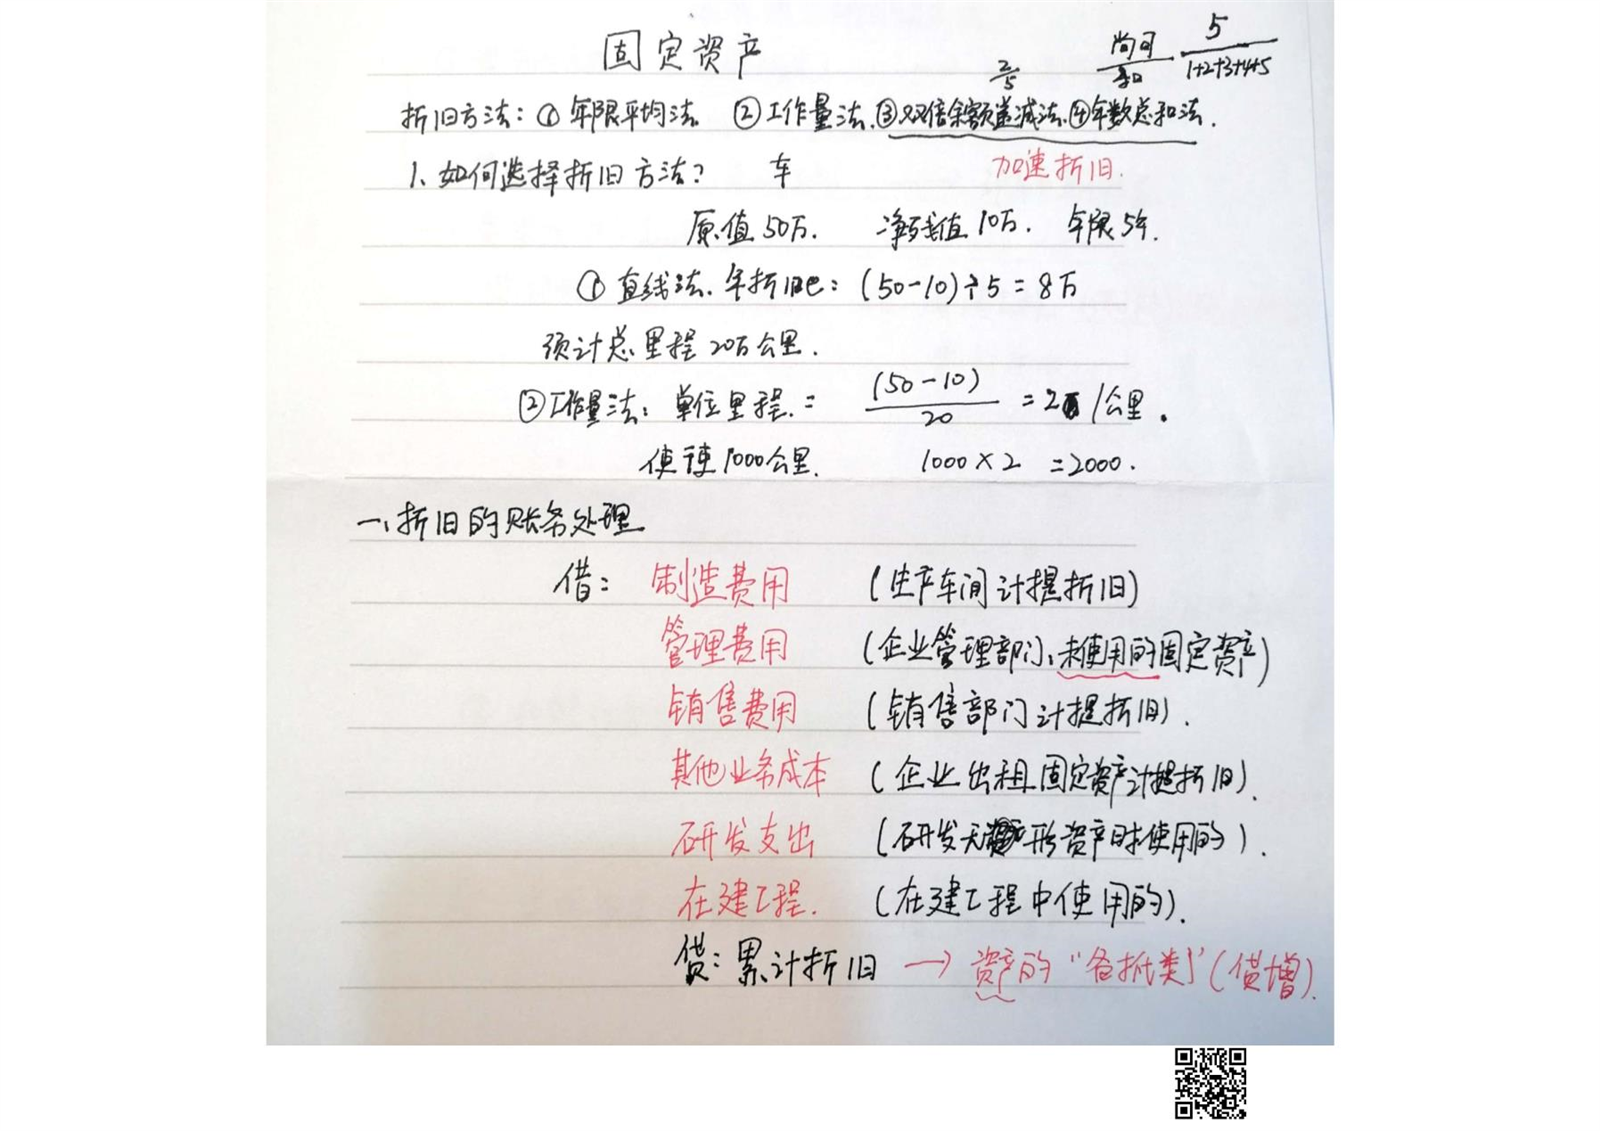 固定资产
2/5 尚可/和 5/1+2+3+4+5
折旧方法：① 年限平均法 ②工作量法、③双倍余额递减法、④年数总和法.
1、如何选择折旧方法？ 车 加速折旧.
原值50万. 净残值10万. 年限5年.
① 直线法、年折旧：(50-10)÷5=8万
预计总里程20万公里.
②工作量法：单位里程.= (50-10)/20 =2 /公里.
使 1000公里. 1000×2 =2000.
一、折旧的账务处理
借：制造费用 (生产车间计提折旧)
管理费用 (企业管理部门、未使用的固定资产)
销售费用 (销售部门计提折旧).
其他业务成本 (企业出租固定资产计提折旧).
研发支出 (研发无形资产时使用的).
在建工程. (在建工程中使用的).
贷：累计折旧 → 资产的“备抵类”(贷增).